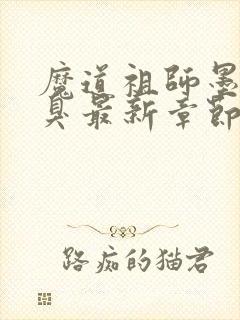 魔道祖師墨
臭最新章節
路痴的猫君